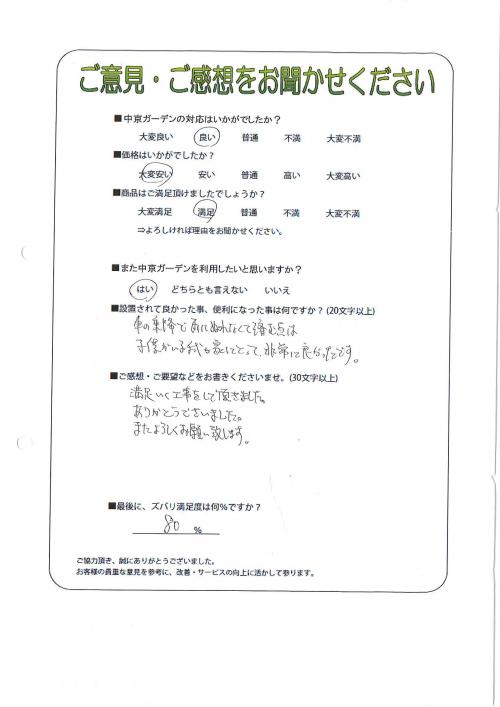 ご意見・ご感想をお聞かせください
■中京ガーデンの対応はいかがでしたか？
大変良い 良い 普通 不満 大変不満
■価格はいかがでしたか？
大変安い 安い 普通 高い 大変高い
■商品はご満足頂けましたでしょうか？
大変満足 満足 普通 不満 大変不満
⇒よろしければ理由をお聞かせください。
■また中京ガーデンを利用したいと思いますか？
はい どちらとも言えない いいえ
■設置されて良かった事、便利になった事は何ですか？(20文字以上)
車の乗降で雨にぬれなくて済む点は
子供がいる我が家にとって、非常に良かったです。
■ご感想・ご要望などをお書きくださいませ。(30文字以上)
満足いく工事をして頂きました。
ありがとうございました。
またよろしくお願い致します。
■最後に、ズバリ満足度は何％ですか？
80 %
ご協力頂き、誠にありがとうございました。
お客様の貴重な意見を参考に、改善・サービスの向上に活かして参ります。